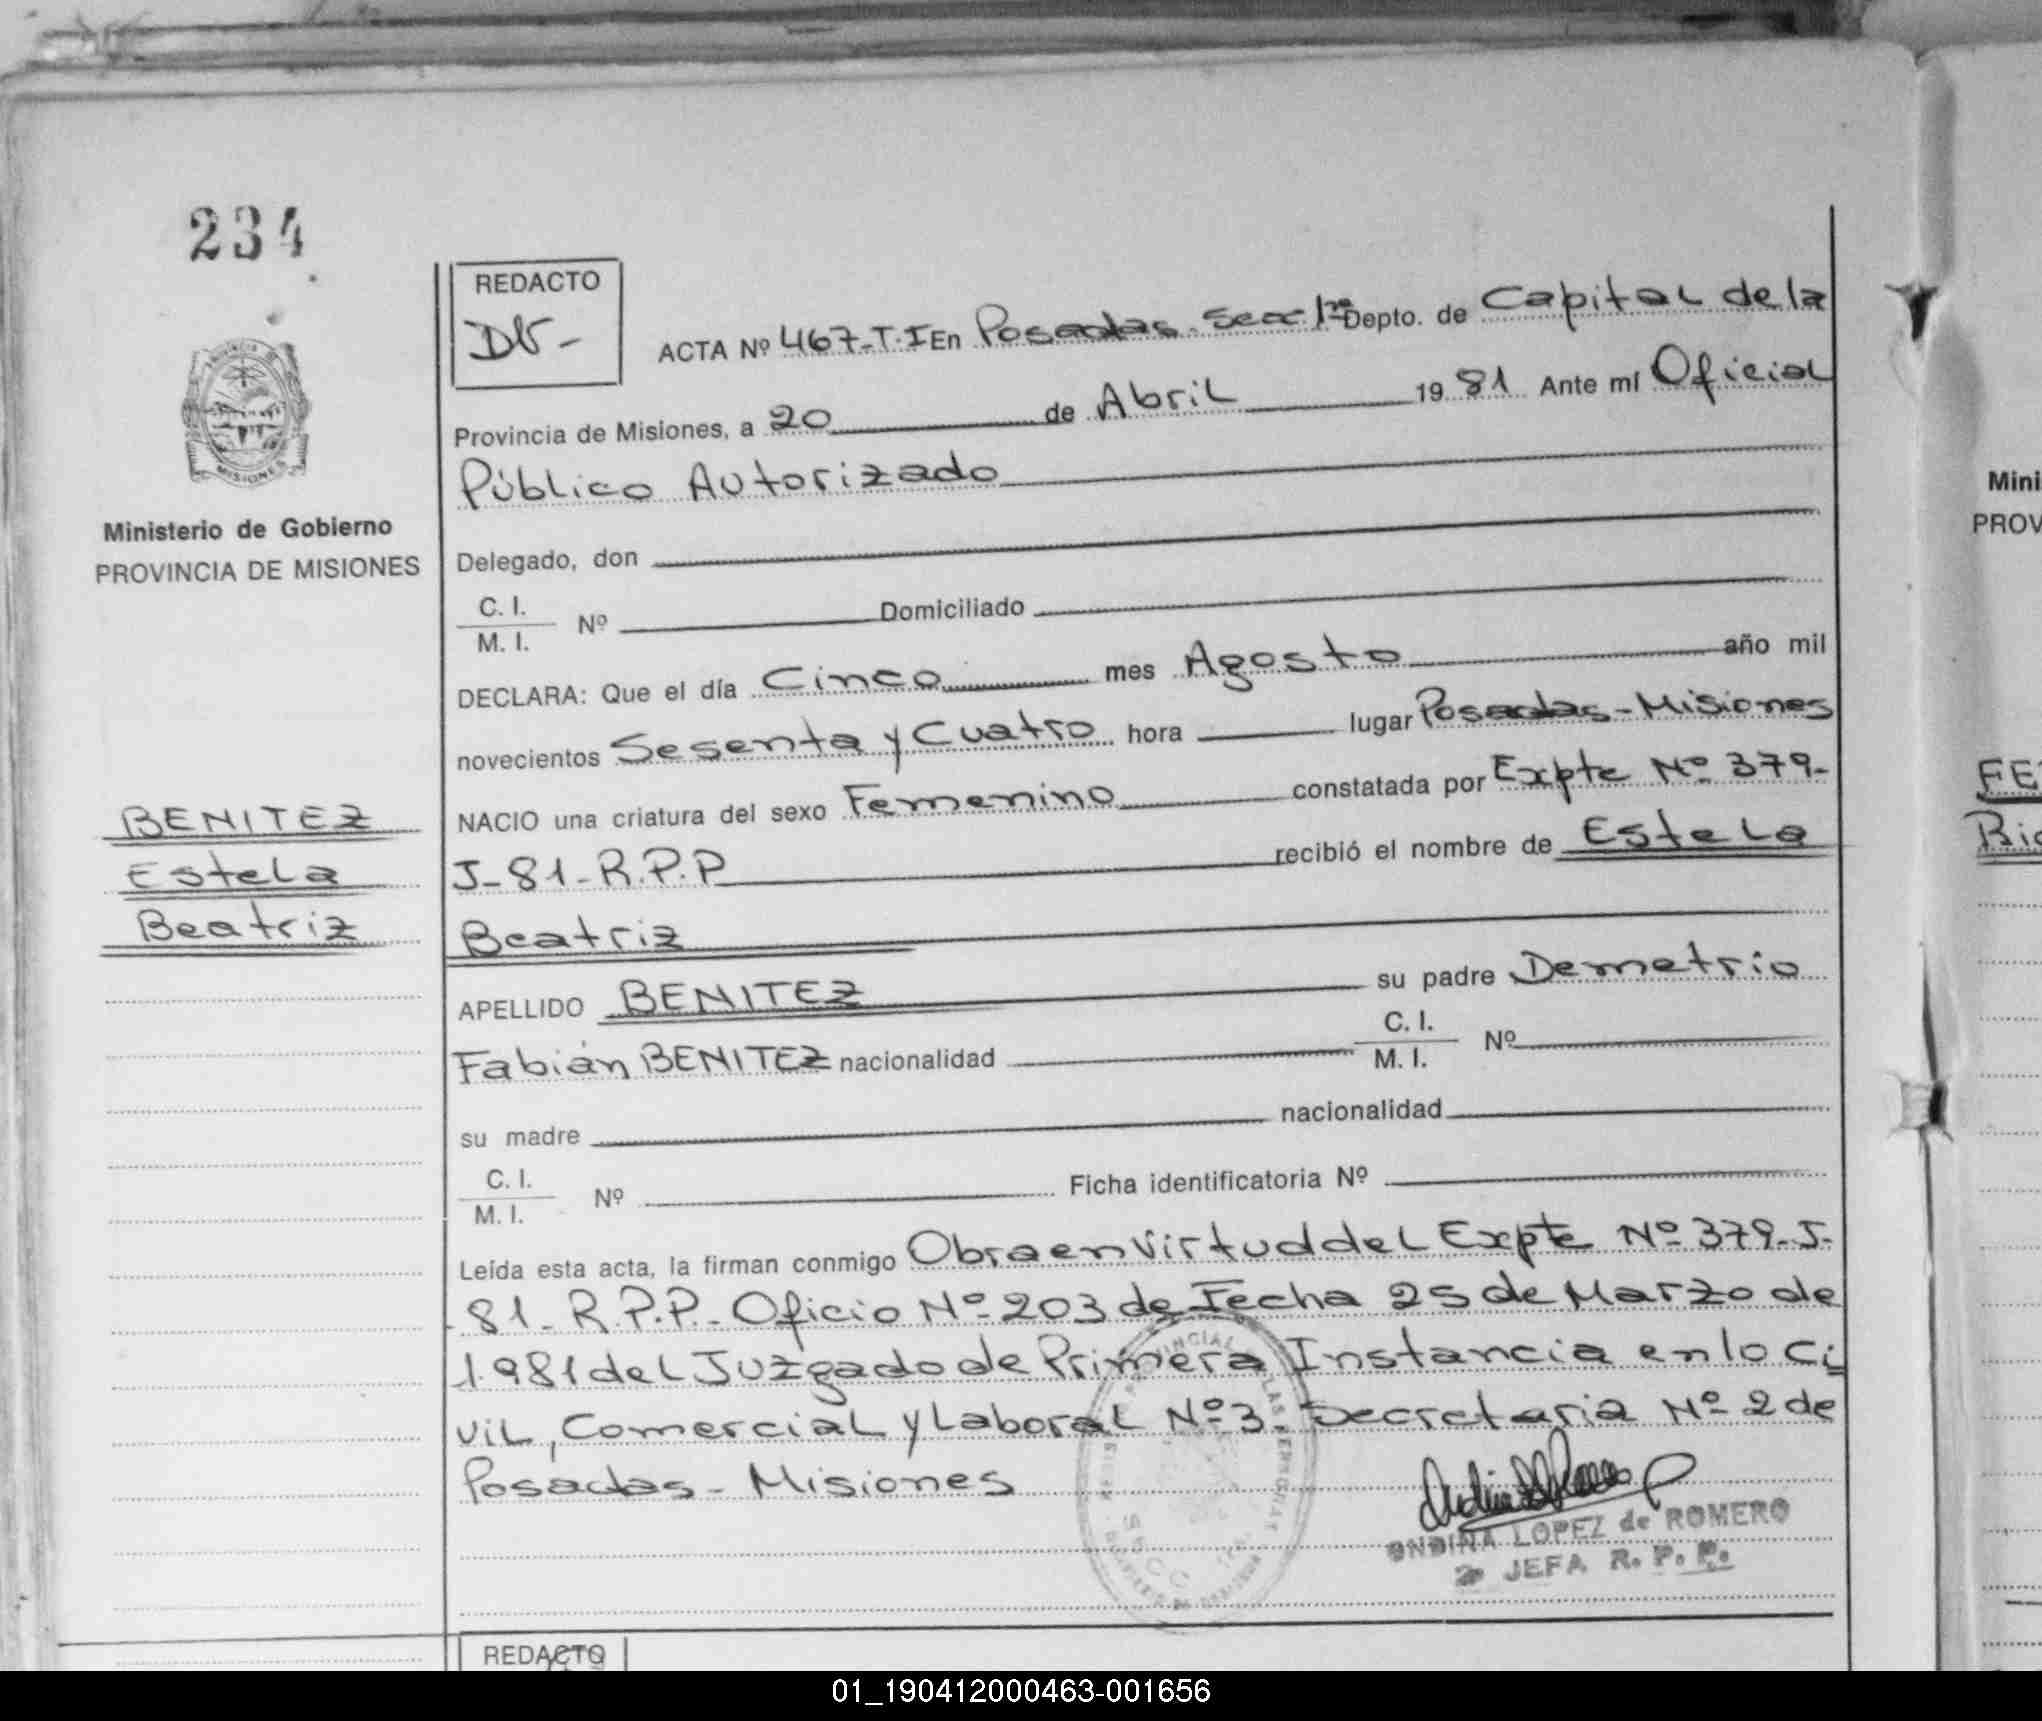 234
REDACTO
DV-
ACTA Nº 467-T.I En Posadas-Secc 1ra Depto. de Capital de la
Provincia de Misiones, a 20 de Abril 1981 Ante mí Oficial
Público Autorizado
MISIONES
Ministerio de Gobierno
PROVINCIA DE MISIONES
Delegado, don
C. I.
M. I. Nº Domiciliado
DECLARA: Que el día Cinco mes Agosto año mil
novecientos Sesenta y Cuatro hora lugar Posadas-Misiones
NACIO una criatura del sexo Femenino constatada por Expte Nº 379-
J-81-R.P.P recibió el nombre de Estela
Beatriz
BENITEZ
Estela
Beatriz
APELLIDO BENITEZ su padre Demetrio
Fabián BENITEZ nacionalidad C. I.
M. I. Nº
su madre nacionalidad
C. I.
M. I. Nº Ficha identificatoria Nº
Leída esta acta, la firman conmigo Obra en virtud del Expte Nº 379-J-
81-R.P.P.-Oficio Nº 203 de Fecha 25 de Marzo de
1981 del Juzgado de Primera Instancia en lo Ci
vil, Comercial y Laboral Nº 3-Secretaria Nº 2 de
Posadas-Misiones
ONDINA LOPEZ de ROMERO
JEFA R. P. P.
REDACTO
Mini
PROV
FE
Ric
01_190412000463-001656